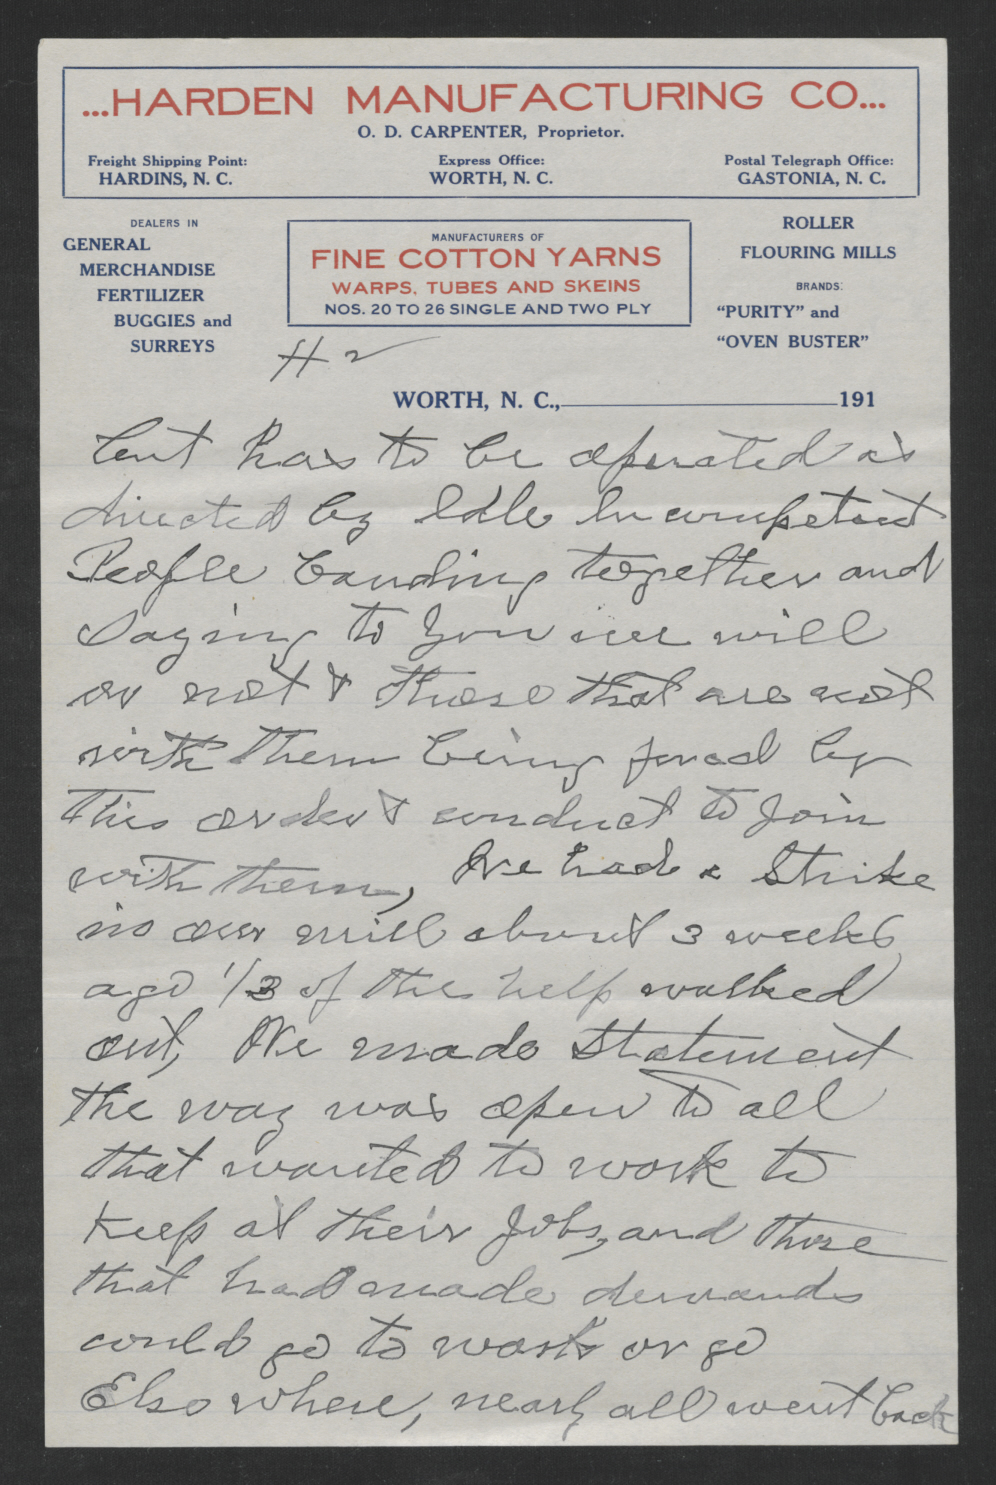 ...HARDEN MANUFACTURING CO...
O. D. CARPENTER, Proprietor.
Freight Shipping Point:
HARDINS, N. C.
Express Office:
WORTH, N. C.
Postal Telegraph Office:
GASTONIA, N. C.
DEALERS IN
GENERAL
MERCHANDISE
FERTILIZER
BUGGIES and
SURREYS
MANUFACTURERS OF
FINE COTTON YARNS
WARPS, TUBES AND SKEINS
NOS. 20 TO 26 SINGLE AND TWO PLY
ROLLER
FLOURING MILLS
BRANDS:
"PURITY" and
"OVEN BUSTER"
# 2
WORTH, N. C., 191
but has to be operated as
directed by Idle Incompetent
People banding together and
Saying to you we will
or not & those that are not
with them being forced by
This order & conduct to Join
with them, We had a Strike
in our mill about 3 weeks
ago 1/3 of the help walked
out, We made Statement
the way was open to all
that wanted to work to
Keep at their Jobs, and those
that had made demands
could go to work or go
Else where, nearly all went back